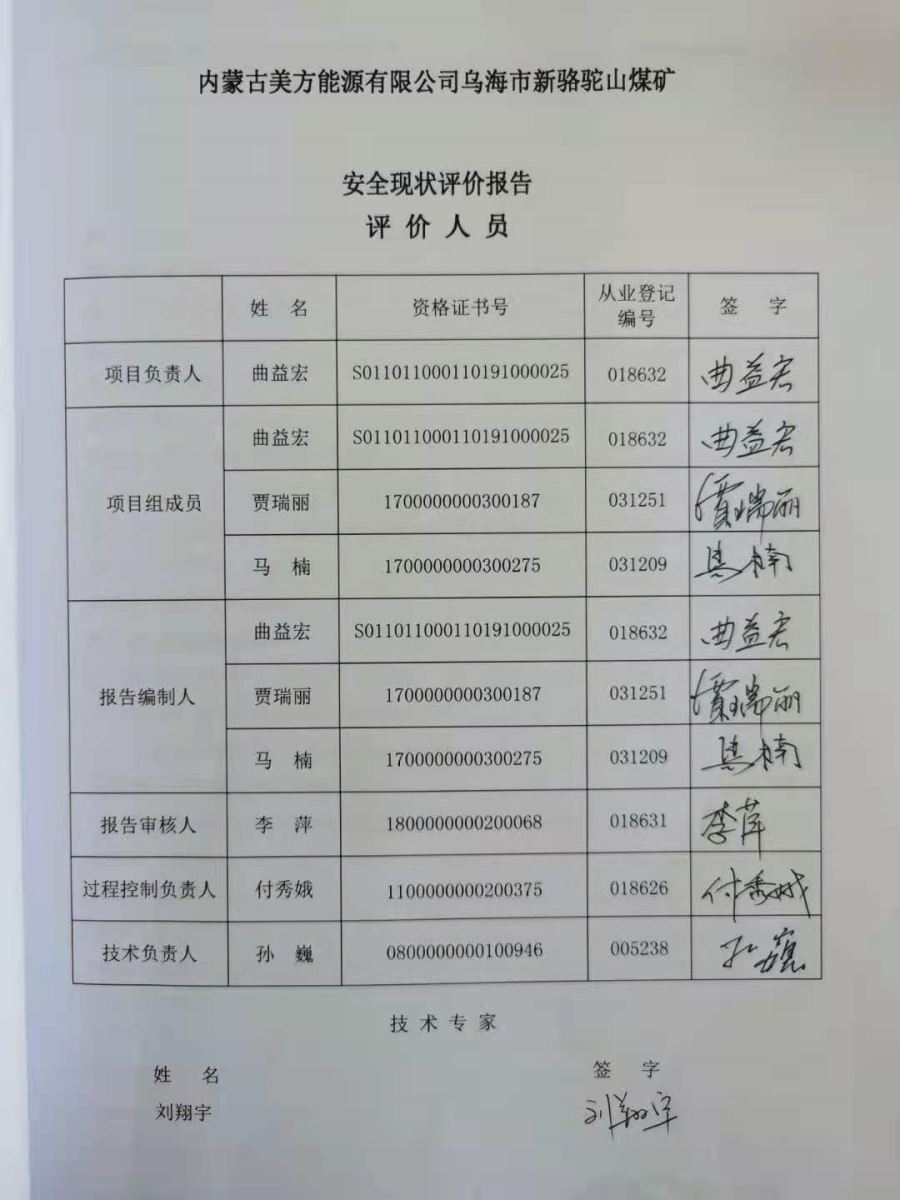 内蒙古美方能源有限公司乌海市新骆驼山煤矿
安全现状评价报告
评 价 人 员
姓 名 资格证书号 从业登记编号 签 字
项目负责人 曲益宏 S011011000110191000025 018632 曲益宏
项目组成员 曲益宏 S011011000110191000025 018632 曲益宏
贾瑞丽 1700000000300187 031251 贾瑞丽
马 楠 1700000000300275 031209 马楠
报告编制人 曲益宏 S011011000110191000025 018632 曲益宏
贾瑞丽 1700000000300187 031251 贾瑞丽
马 楠 1700000000300275 031209 马楠
报告审核人 李 萍 1800000000200068 018631 李萍
过程控制负责人 付秀娥 1100000000200375 018626 付秀娥
技术负责人 孙 巍 0800000000100946 005238 孙巍
技 术 专 家
姓 名 签 字
刘翔宇 刘翔宇